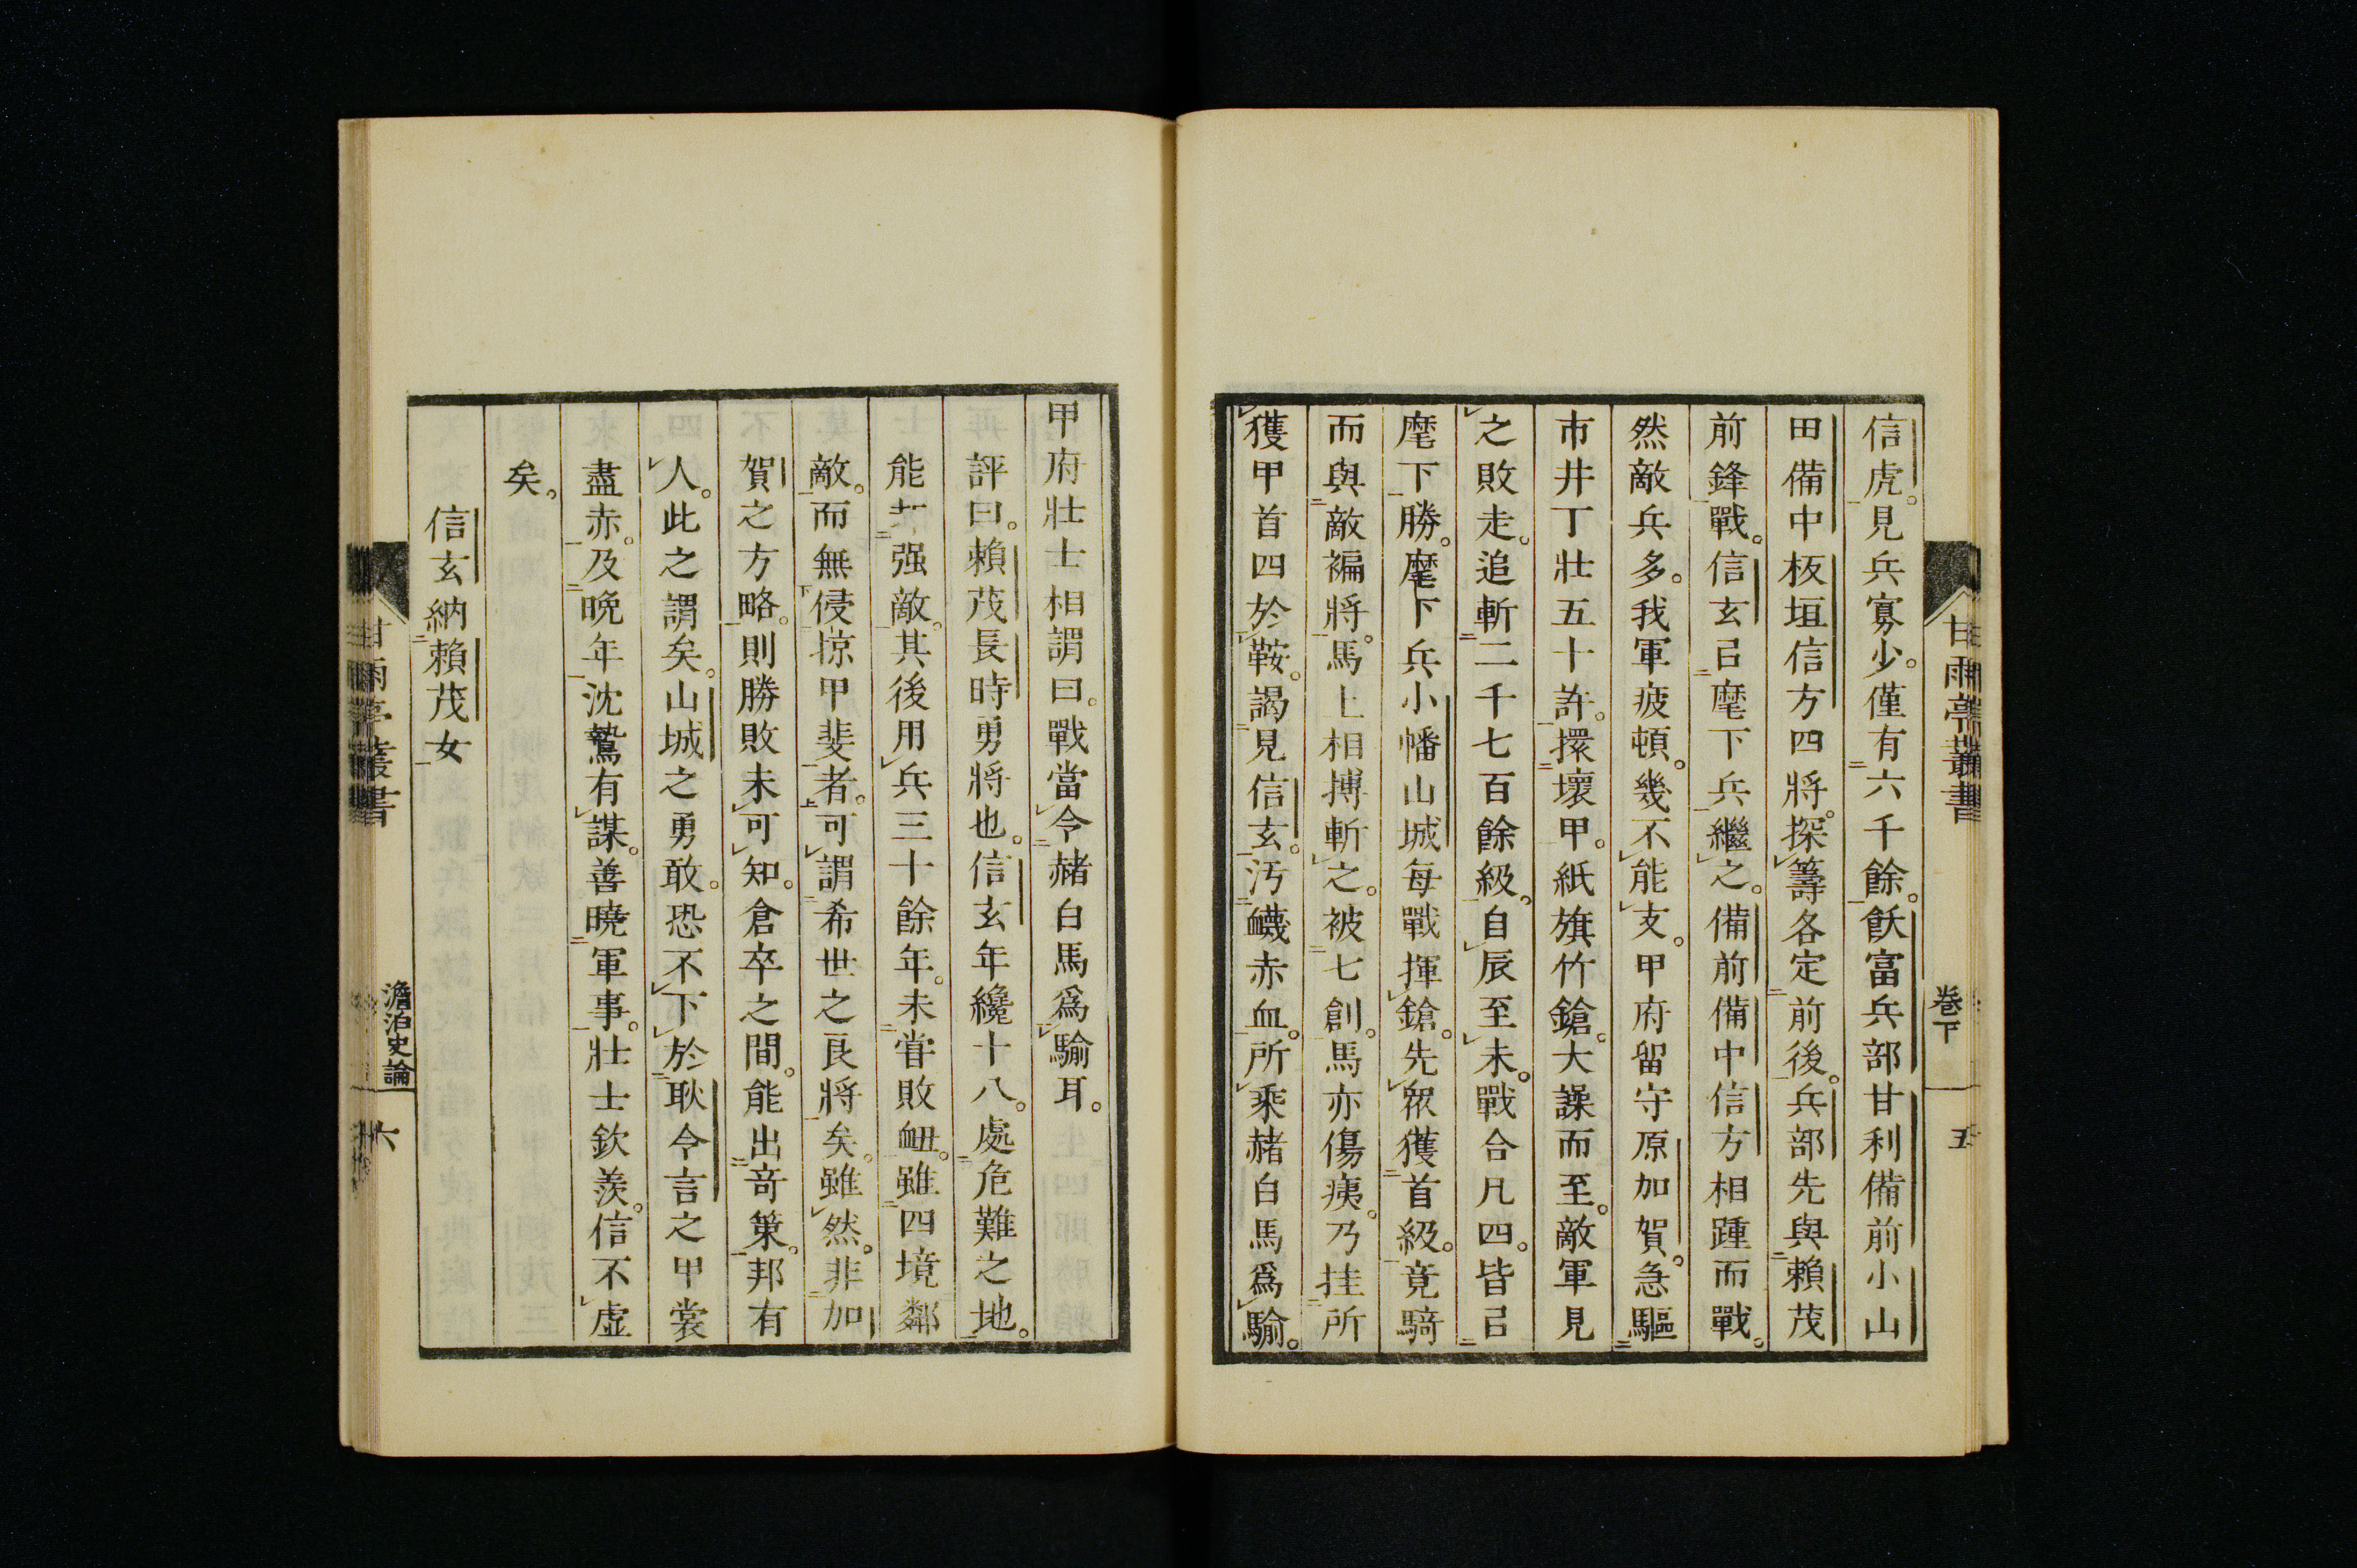 信虎。見兵寡少。僅有六千餘。飫富兵部甘利備前小山
田備中板垣信方四將。探籌各定前後。兵部先與賴茂
前鋒戰。信玄㠯麾下兵繼之。備前備中信方相踵而戰。
然敵兵多。我軍疲頓。幾不能支。甲府留守原加賀。急驅
市井丁壯五十許。擐壞甲。紙旗竹鎗。大譟而至。敵軍見
之敗走。追斬二千七百餘級。自辰至未。戰合凡四。皆㠯
麾下勝。麾下兵小幡山城每戰揮鎗。先衆獲首級。竟騎
而與敵褊將。馬上相搏斬之。被七創。馬亦傷痍。乃挂所
獲甲首四於鞍。謁見信玄。汚衊赤血。所乘赭白馬爲騟。
甘雨亭叢書
卷下
五
甲府壯士相謂曰。戰當令赭白馬爲騟耳。
評曰。賴茂長時勇將也。信玄年纔十八。處危難之地。
能扞强敵。其後用兵三十餘年。未嘗敗衄。雖四境鄰
敵。而無侵掠甲斐者。可謂希世之良將矣。雖然。非加
賀之方略。則勝敗未可知。倉卒之間。能出竒策。邦有
人。此之謂矣。山城之勇敢。恐不下於耿令言之甲裳
盡赤。及晚年沈鷙有謀。善曉軍事。壯士欽羨。信不虛
矣。
信玄納賴茂女
甘雨亭叢書
澹泊史論
六